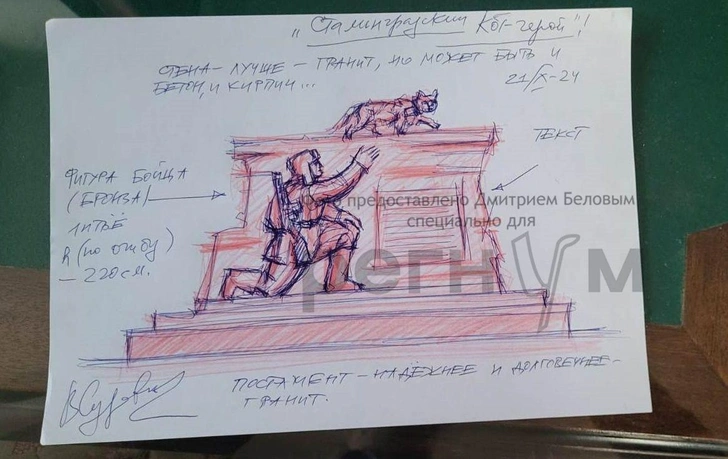 "Сталинградский Кот-герой"!
СТЕНА - ЛУЧШЕ - ГРАНИТ, НО МОЖЕТ БЫТЬ И
БЕТОН, И КИРПИЧ...
21/X-24
ТЕКСТ
ФИГУРА БОЙЦА
(БРОНЗА)
ЛИТЬЁ
h (по
- 220 см.
Фото предоставлено Дмитрием Беловым
специально для
регнум
ПОСТАМЕНТ - НАДЁЖНЕЕ И ДОЛГОВЕЧНЕЕ -
ГРАНИТ.